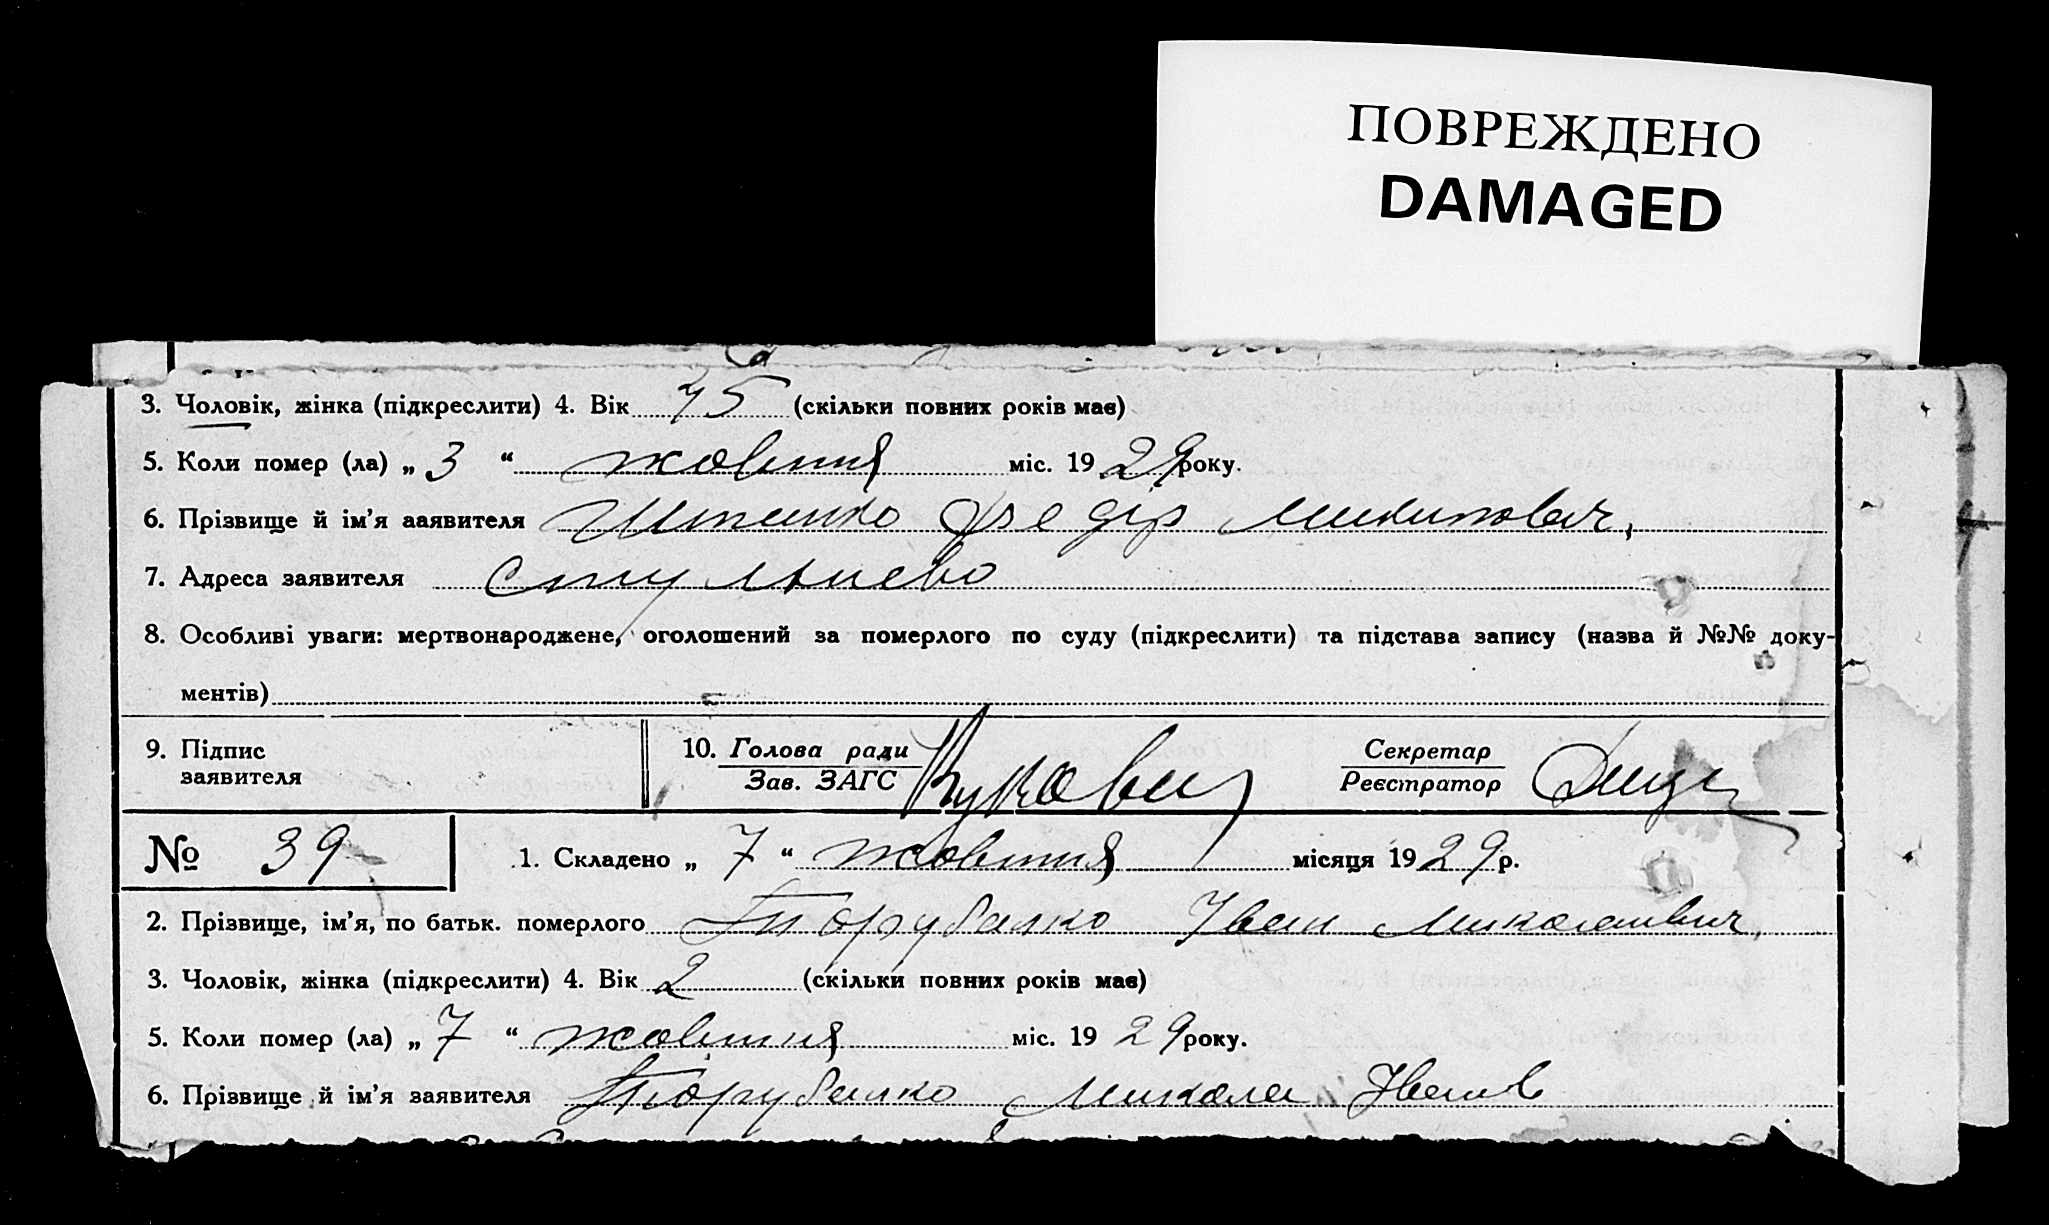 ПОВРЕЖДЕНО
DAMAGED
3. Чоловік, жінка (підкреслити) 4. Вік 75 (скільки повних років має)
5. Коли помер (ла) „ 3 “ жовтня міс. 19 29 року.
6. Прізвище й ім'я заявителя Федір
7. Адреса заявителя
8. Особливі уваги: мертвонароджене, оголошений за померлого по суду (підкреслити) та підстава запису (назва й №№ доку-
ментів)
9. Підпис
заявителя
10. Голова ради
Зав. ЗАГС
Секретар
Реєстратор
№ 39
1. Складено „ 7 “ жовтня місяця 19 29 р.
2. Прізвище, ім'я, по батьк. померлого Іван Миколаевич,
3. Чоловік, жінка (підкреслити) 4. Вік 2 (скільки повних років має)
5. Коли помер (ла) „ 7 “ жовтня міс. 19 29 року.
6. Прізвище й ім'я заявителя Микола Іванов